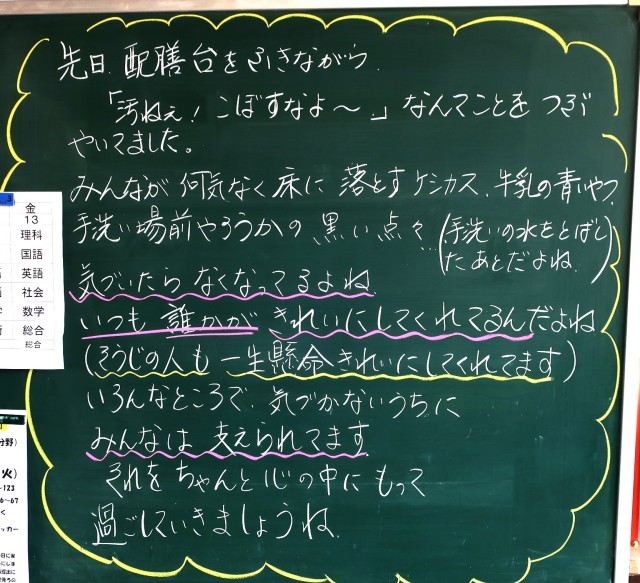 先日、配膳台をふきながら、
「汚ねぇ！こぼすなよ〜」なんてことをつぶ
やいてました。
みんなが何気なく床に落とすケシカス、牛乳の青いやつ
手洗い場前やろうかの黒い点々…(手洗いの水をとばし
たあとだよね)
気づいたらなくなってるよね
いつも誰かがきれいにしてくれてるんだよね
(そうじの人も一生懸命きれいにしてくれてます)
いろんなところで、気づかないうちに
みんなは支えられてます
それをちゃんと心の中にもって
過ごしていきましょうね.
3
金
13
理科
国語
英語
社会
数学
総合
総合
分野)
火)
~123
6~67
く
ッカー